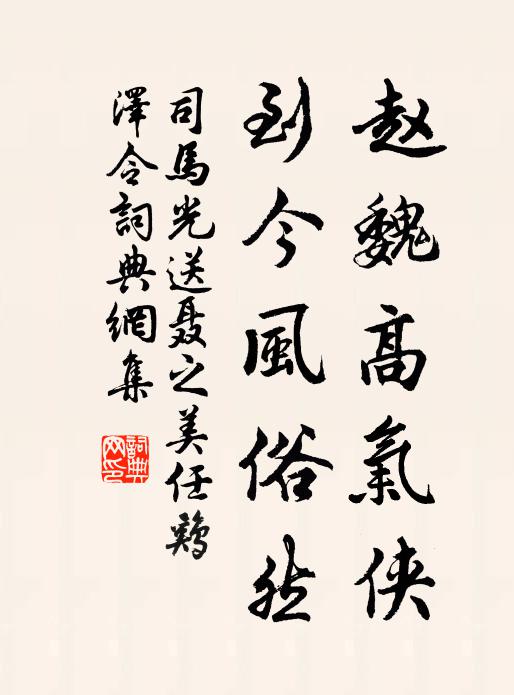 赵魏高氣侠
到今風俗然
司馬光送聂之美任鷄
澤令詞典網集
詞典網印